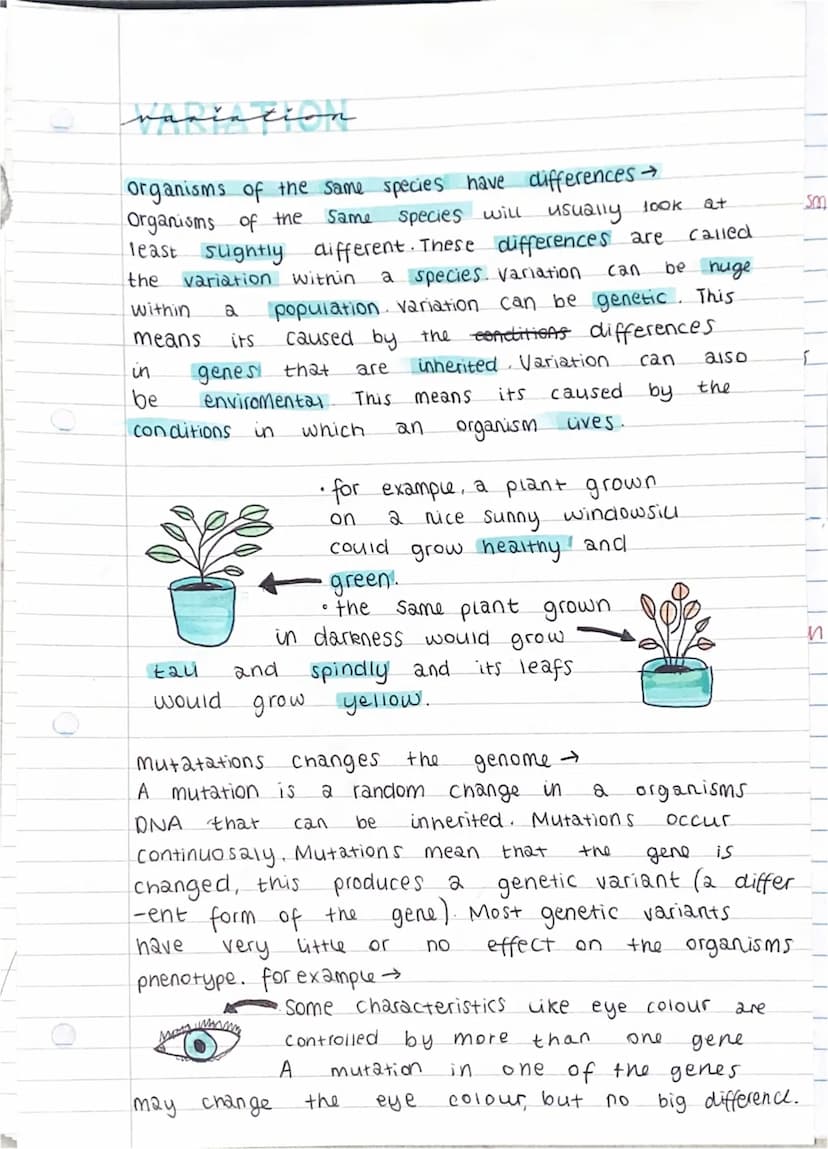 VARIATION
variation
organisms of the same species have differences →
Organisms of the same species will usually look at
least slightly different. These differences are called
the variation within a species. Variation can be huge
within a population. Variation can be genetic. This
means its caused by the conditions differences
in genes that are inherited. Variation can also
be enviromental. This means its caused by the
conditions in which an organism lives.
• for example, a plant grown
on a nice sunny windowsill
could grow healthy and
green.
• the same plant grown
in darkness would grow
tall and spindly and its leafs
would grow yellow.
Mutatations changes the genome →
A mutation is a random change in a organisms
DNA that can be inherited. Mutations occur
continuosaly. Mutations mean that the gene is
changed, this produces a genetic variant (a differ
-ent form of the gene). Most genetic variants
have very little or no effect on the organisms
phenotype. for example →
Some characteristics like eye colour are
controlled by more than one gene
A mutation in one of the genes
may change the eye colour, but no big difference.
sm